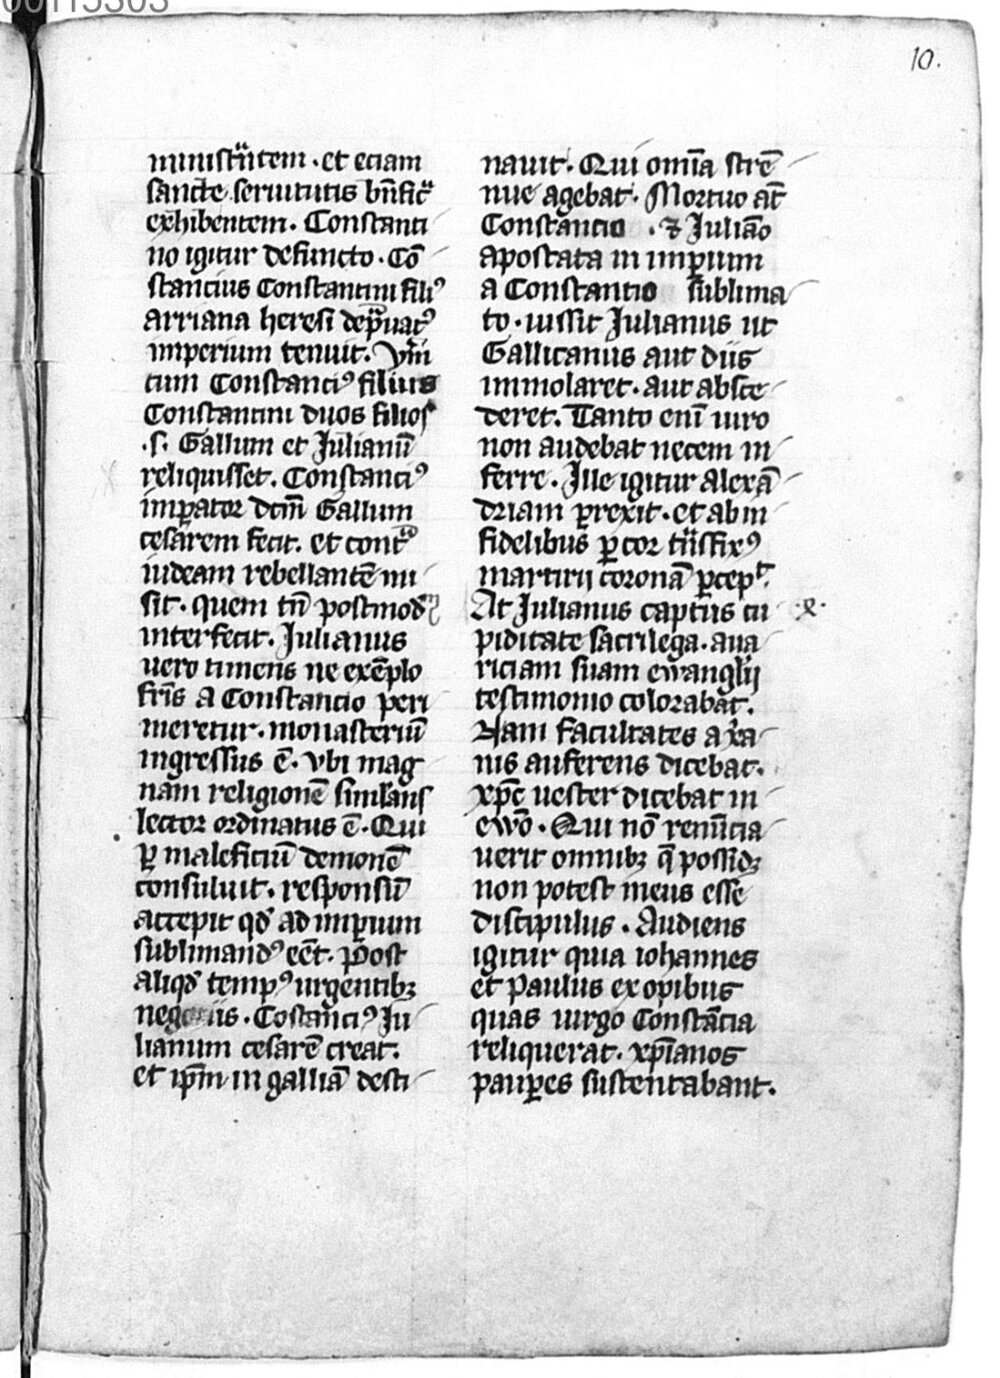 00115303
10.
ministͣntem · et eciam
sancte seruitutis bn̄ficͣ
exhibentem · Constanti
no igitur defuncto · Cō
stancius Constantini filiꝰ
arriana heresi dep̱ͣuatꝰ
imperium tenuit. Vn̄
cum Constanciꝰ filius
Constantini duos filios
.s. Gallum et Julianū
reliquisset. Constanciꝰ
imꝑator dc̄m Gallum
cesarem fecit. et contͣ
iudeam rebellantē mi
sit · quem tn̄ postmodū
interfecit. Julianus
uero timens ne exēplo
fr̄is a Constancio peri
meretur · monasteriū
ingressus ē. vbi mag
nam religionē similans
lector ordinatus ē · Qui
ꝑ maleficiū demonē
consuluit. responsū
accepit qd̓ ad imꝑium
sublimandꝰ eēt. Post
aliqd̓ tempꝰ urgentibꝫ
negociis · Costan̄ciꝰ Ju
lianum cesarē creat.
et ip̄m in galliā desti
nauit. Qui omīa stre
nue agebat. Mortuo at̄
Constancio · ⁊ Juliāo
apostata in imꝑium
a Constantio sublima
to · iussit Julianus ut
Gallicanus aut diis
immolaret · aut absce
deret. Tanto enī uiro
non audebat necem in
ferre. Ille igitur Alexā
driam ꝑrexit · et ab in
fidelibus ꝑ cor tͣnsfixꝰ
martirij coronā ꝑcepᵗ.
At Julianus captus cu
piditate sacrilega · aua
riciam suam ewanglij
testimonio colorabat.
Nam facultates a xͬia
nis auferens dicebat.
xp̄c uester dicebat in
ewō · Qui nō renūcia
uerit omnibꝫ q̄ possidꝫ
non potest meus esse
discipulus · Audiens
igitur quia iohannes
et Paulus ex opibus
quas uirgo Constācia
reliquerat. xp̄ianos
pauꝑes sustentabant.